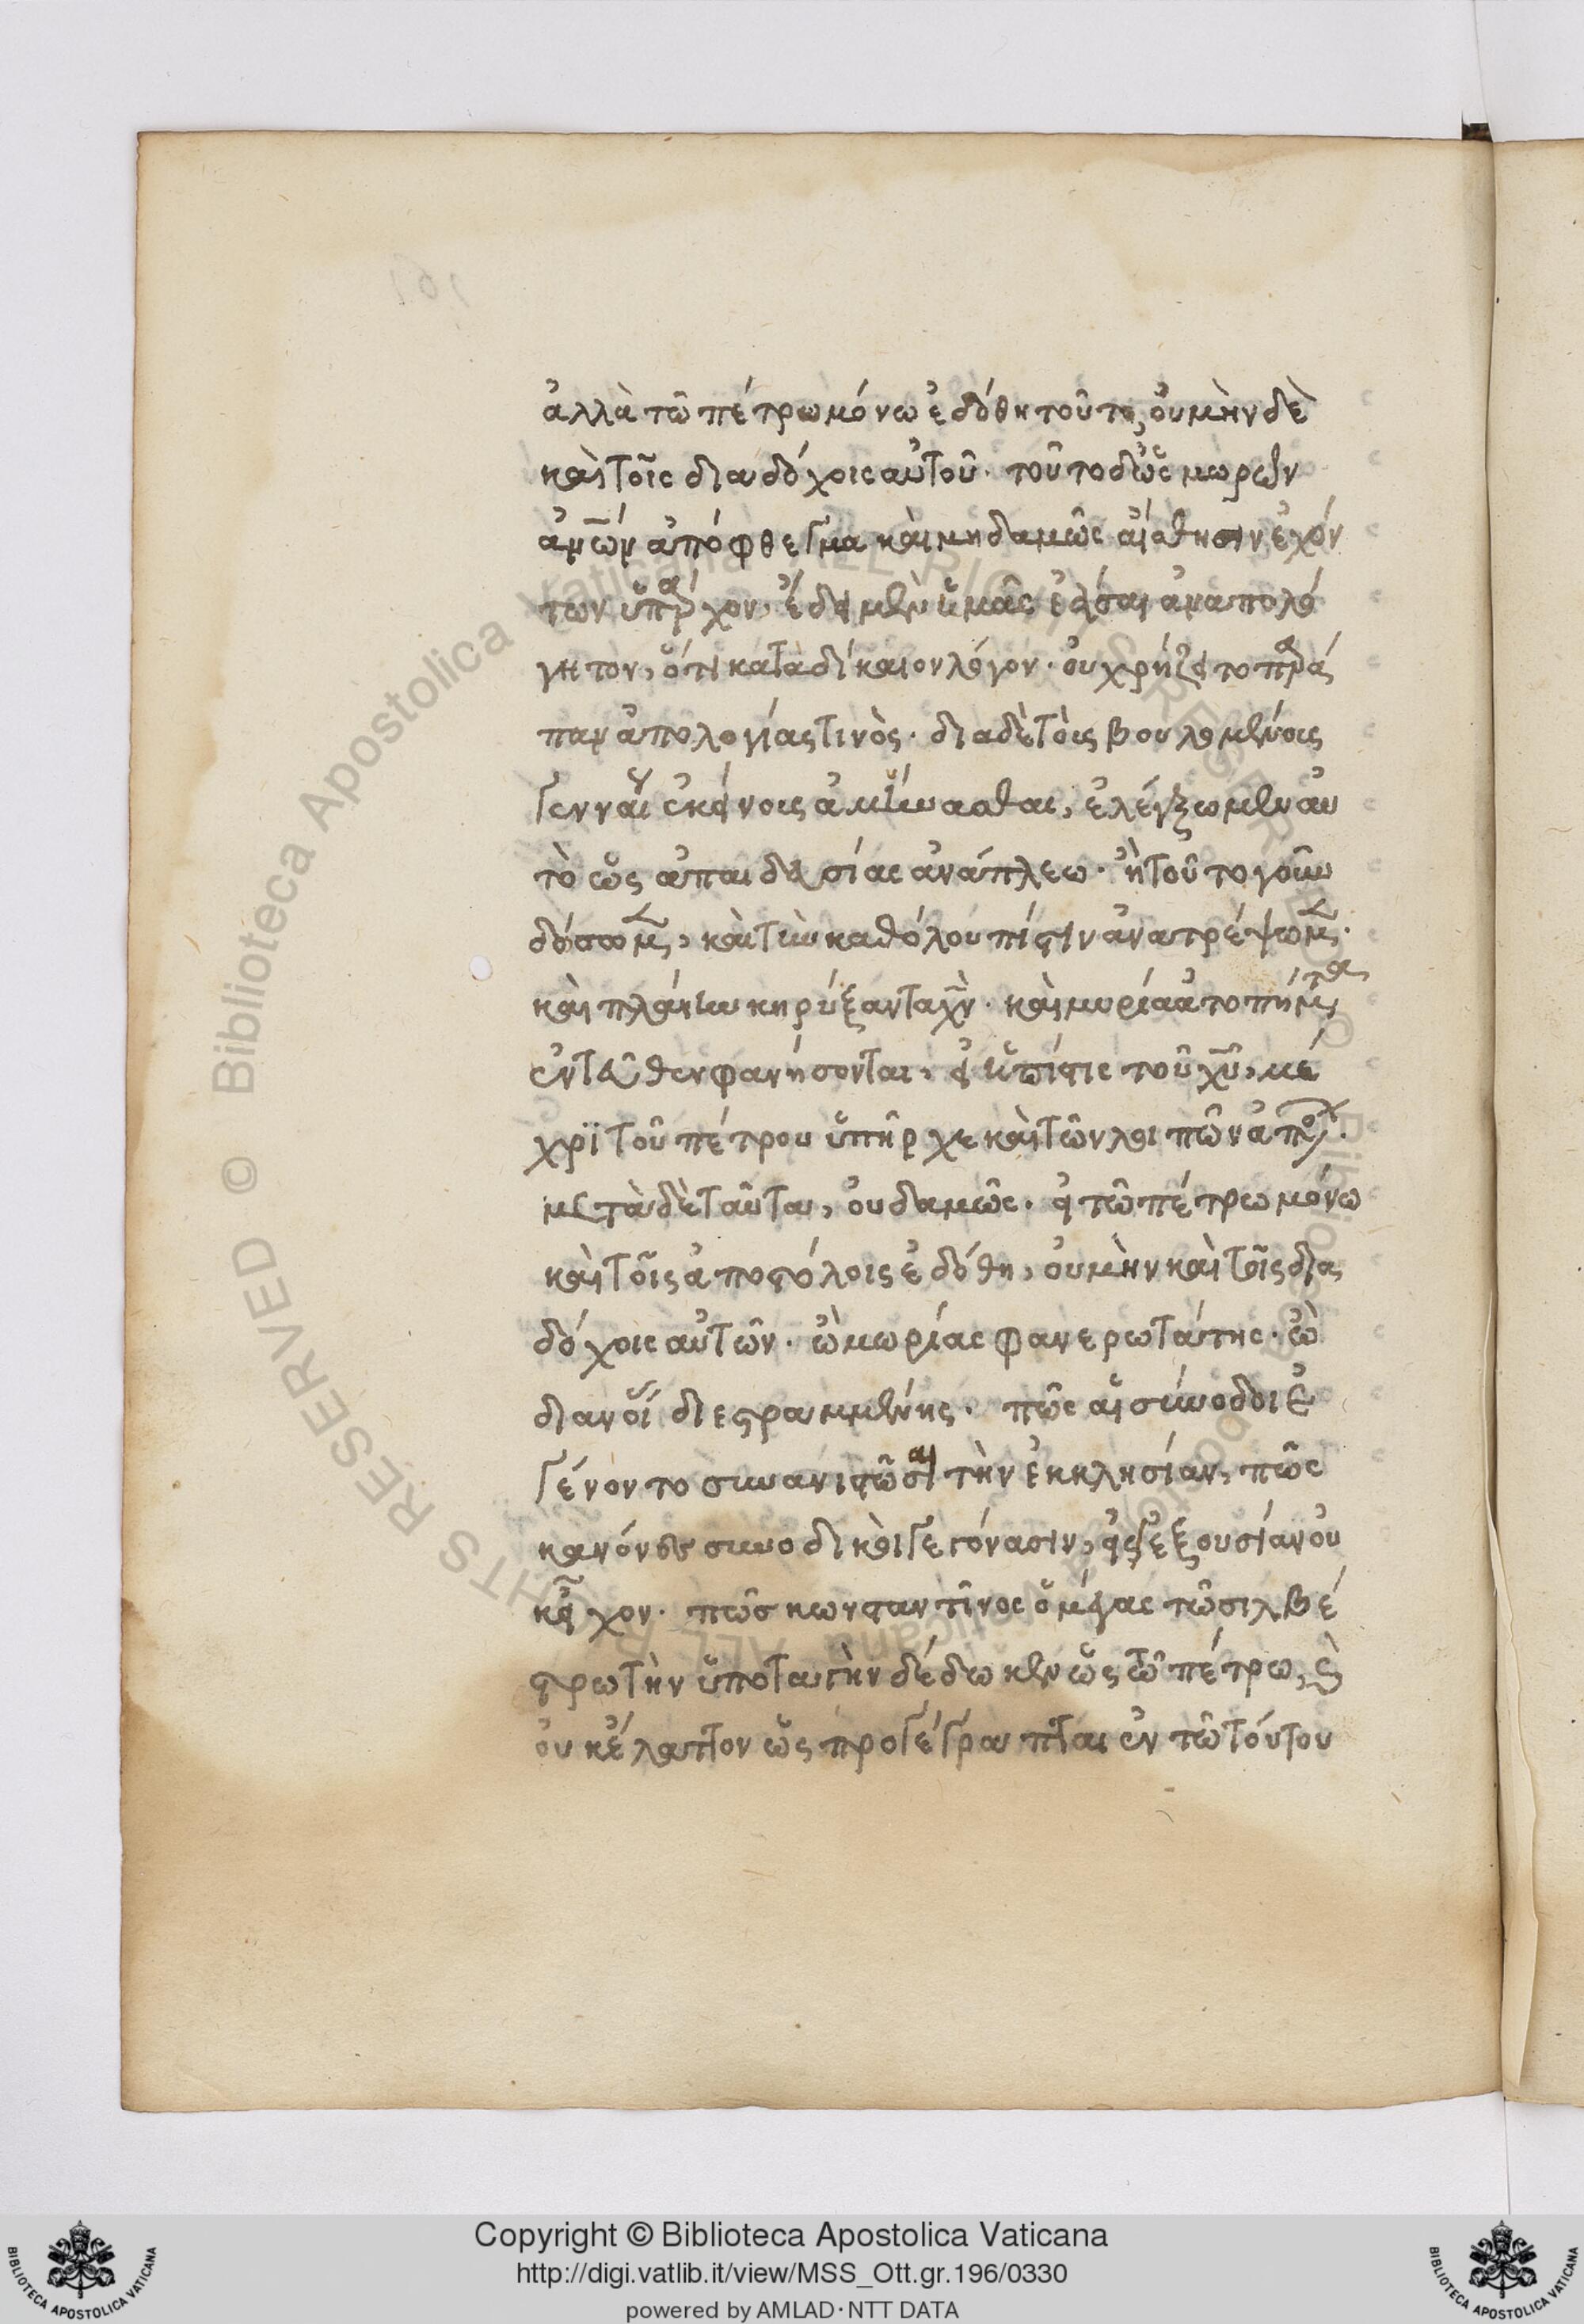 ἀλλὰ τῶ πέτρω μόνω ἐδόθη τοῦτο, οὐμὴν δὲ
καὶ τοῖς διαδόχοις αὐτοῦ· τοῦτο δ' ὡς μωρῶν
ἀν̅ω̅ν ἀπόφθεγμα καὶ μηδαμῶς αἴσθησιν ἐχόν
των ὑπάρχον, ἔδει μὲν ἡμᾶς ἐᾶσαι ἀναπολό
γητον, ὅτι κατὰ δίκαιον λόγον· οὐ χρήζει τοπαρά
παν ἀπολογίας τινὸς· διαδὲ τὸις βουλομένοις
γενναί ἐκείνοις ἀμύνασθαι, ἐλέγξωμεν αυ
τὸ ὡς ἀπαιδευσίας ἀνάπλεω· ἢ τοῦτο γοῦν
δόσομ̅, καὶ τὴν καθόλου πίστιν ἀνατρέψωμ̅·
καὶ πλάνην κηρύξαντα χ̅ν· καὶ μυρία ἀτοπήμτα
ἐντεῦθεν φανήσονται, εἰ ἡ πίστις τοῦ χ̅υ, μέ
χρϊ τοῦ πέτρου ὑπῆρχε καὶ τῶν λοιπῶν ἀποστ·
μετὰ δὲ ταῦτα, οὐδαμῶς· εἰ τῶ πέτρω μόνω
καὶ τοῖς ἀποστόλοις ἐδόθη, οὐμὴν καὶ τοῖς δια
δόχοις αὐτῶν· ὢ μωρίας φανερωτάτης· ὢ
διανοί διεστραμμένης· πῶς αἱ σύνοδοι ἐ
γένοντο συνανιστῶσαι τὴν ἐκκλησίαν, πῶς
κανόνες συνοδικοὶ γεγόνασιν, εἰ ἐξουσίαν οὐ
κ εἶχον· πῶσ κωνσταντῖνος ὁ μέγας τῶ σιλβέ
στρω τὴν ὑποταγὴν δέδωκεν ὡς τῶ πέτρω, καὶ
οὐκ ἔλαττον ὡς προγέγραπται ἐν τῶ τούτου
Copyright © Biblioteca Apostolica Vaticana
http://digi.vatlib.it/view/MSS_Ott.gr.196/0330
powered by AMLAD·NTT DATA
BIBLIOTECA APOSTOLICA VATICANA
BIBLIOTECA APOSTOLICA VATICANA